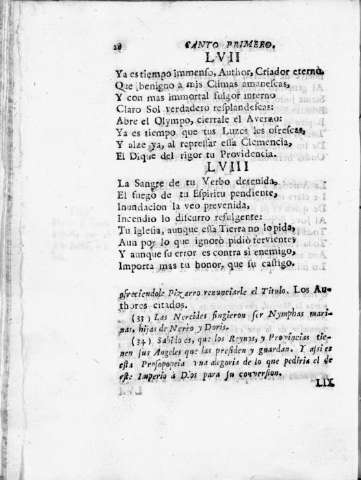 28 CANTO PRIMERO.
LVII
Ya es tiempo immenso, Author, Criador eterno,
Que benigno a mis Climas amanescas,
Y con mas immortal fulgor interno
Claro Sol verdadero resplandescas:
Abre el Olympo, cierrale el Averno:
Ya es tiempo que tus Luzes les ofrescas,
Y alze ya, al represar essa Clemencia,
El Dique del rigor tu Providencia.
LVIII
La Sangre de tu Verbo detenida,
El fuego de tu Espiritu pendiente,
Inundacion la veo prevenida,
Incendio lo discurro resulgente:
Tu Iglesia, aunque essa Tierra no lo pida,
Aun por lo que ignorò pidiò ferviente;
Y aunque su error es contra si enemigo,
Importa mas tu honor, que su castigo.
ofreciendole Pizarro renunciarle el Titulo. Los Au-
thores citados.
(33) Las Nereides fingieron ser Nymphas mari-
nas, hijas de Nereo y Doris.
(34) Sabido es, que los Reynos, y Provincias tie-
nen sus Angeles que las presiden y guardan. Y assi es
esta Prosopopeia una alegoria de lo que pediria el de
este Imperio à Dios para su conversion.
LIX